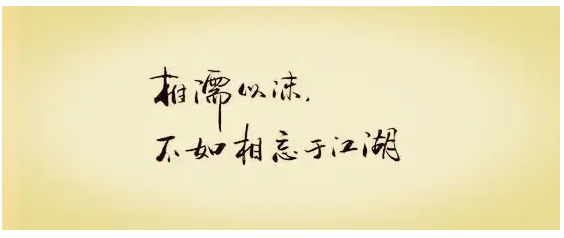 相濡以沫，
不如相忘于江湖